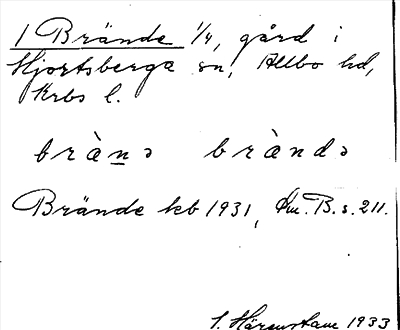 1 Brände 1/4, gård i
Hjortsberga sn, Allbo hd,
Krbs l.
bràn̲ə bràndə
Brände kb 1931, Öm. B. s. 211.
S. Härenstam 1933